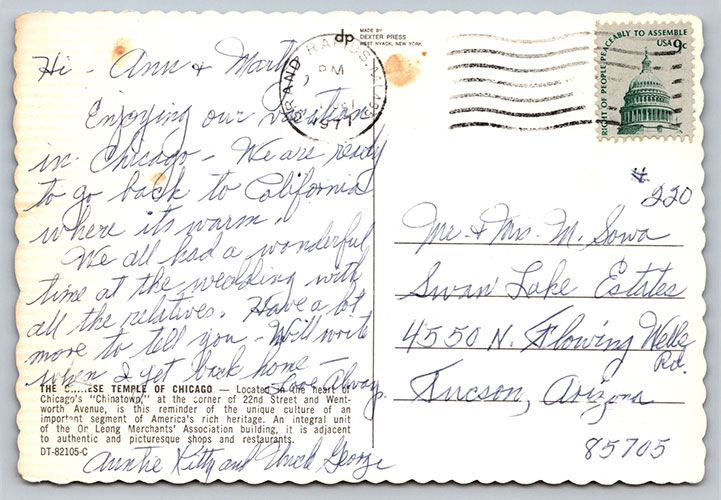 dp
MADE BY
DEXTER PRESS
WEST NYACK, NEW YORK
GRAND RAPIDS
PM
RIGHT OF PEOPLE PEACEABLY TO ASSEMBLE
USA 9c
Hi - Ann & Marty,
Enjoying our vacation
in Chicago - We are ready
to go back to California
where its warm.
We all had a wonderful
time at the wedding with
all the relatives. Have a lot
more to tell you - Will write
when I get back home -
Love Always
Auntie Kitty and Uncle George
# 220
Mr. & Mrs. M. Sowa
Swan Lake Estates
4550 N. Flowing Wells
Rd.
Tucson, Arizona
85705
THE CHINESE TEMPLE OF CHICAGO — Located in the heart of
Chicago's "Chinatown," at the corner of 22nd Street and Went-
worth Avenue, is this reminder of the unique culture of an
important segment of America's rich heritage. An integral unit
of the On Leong Merchants' Association building, it is adjacent
to authentic and picturesque shops and restaurants.
DT-82105-C